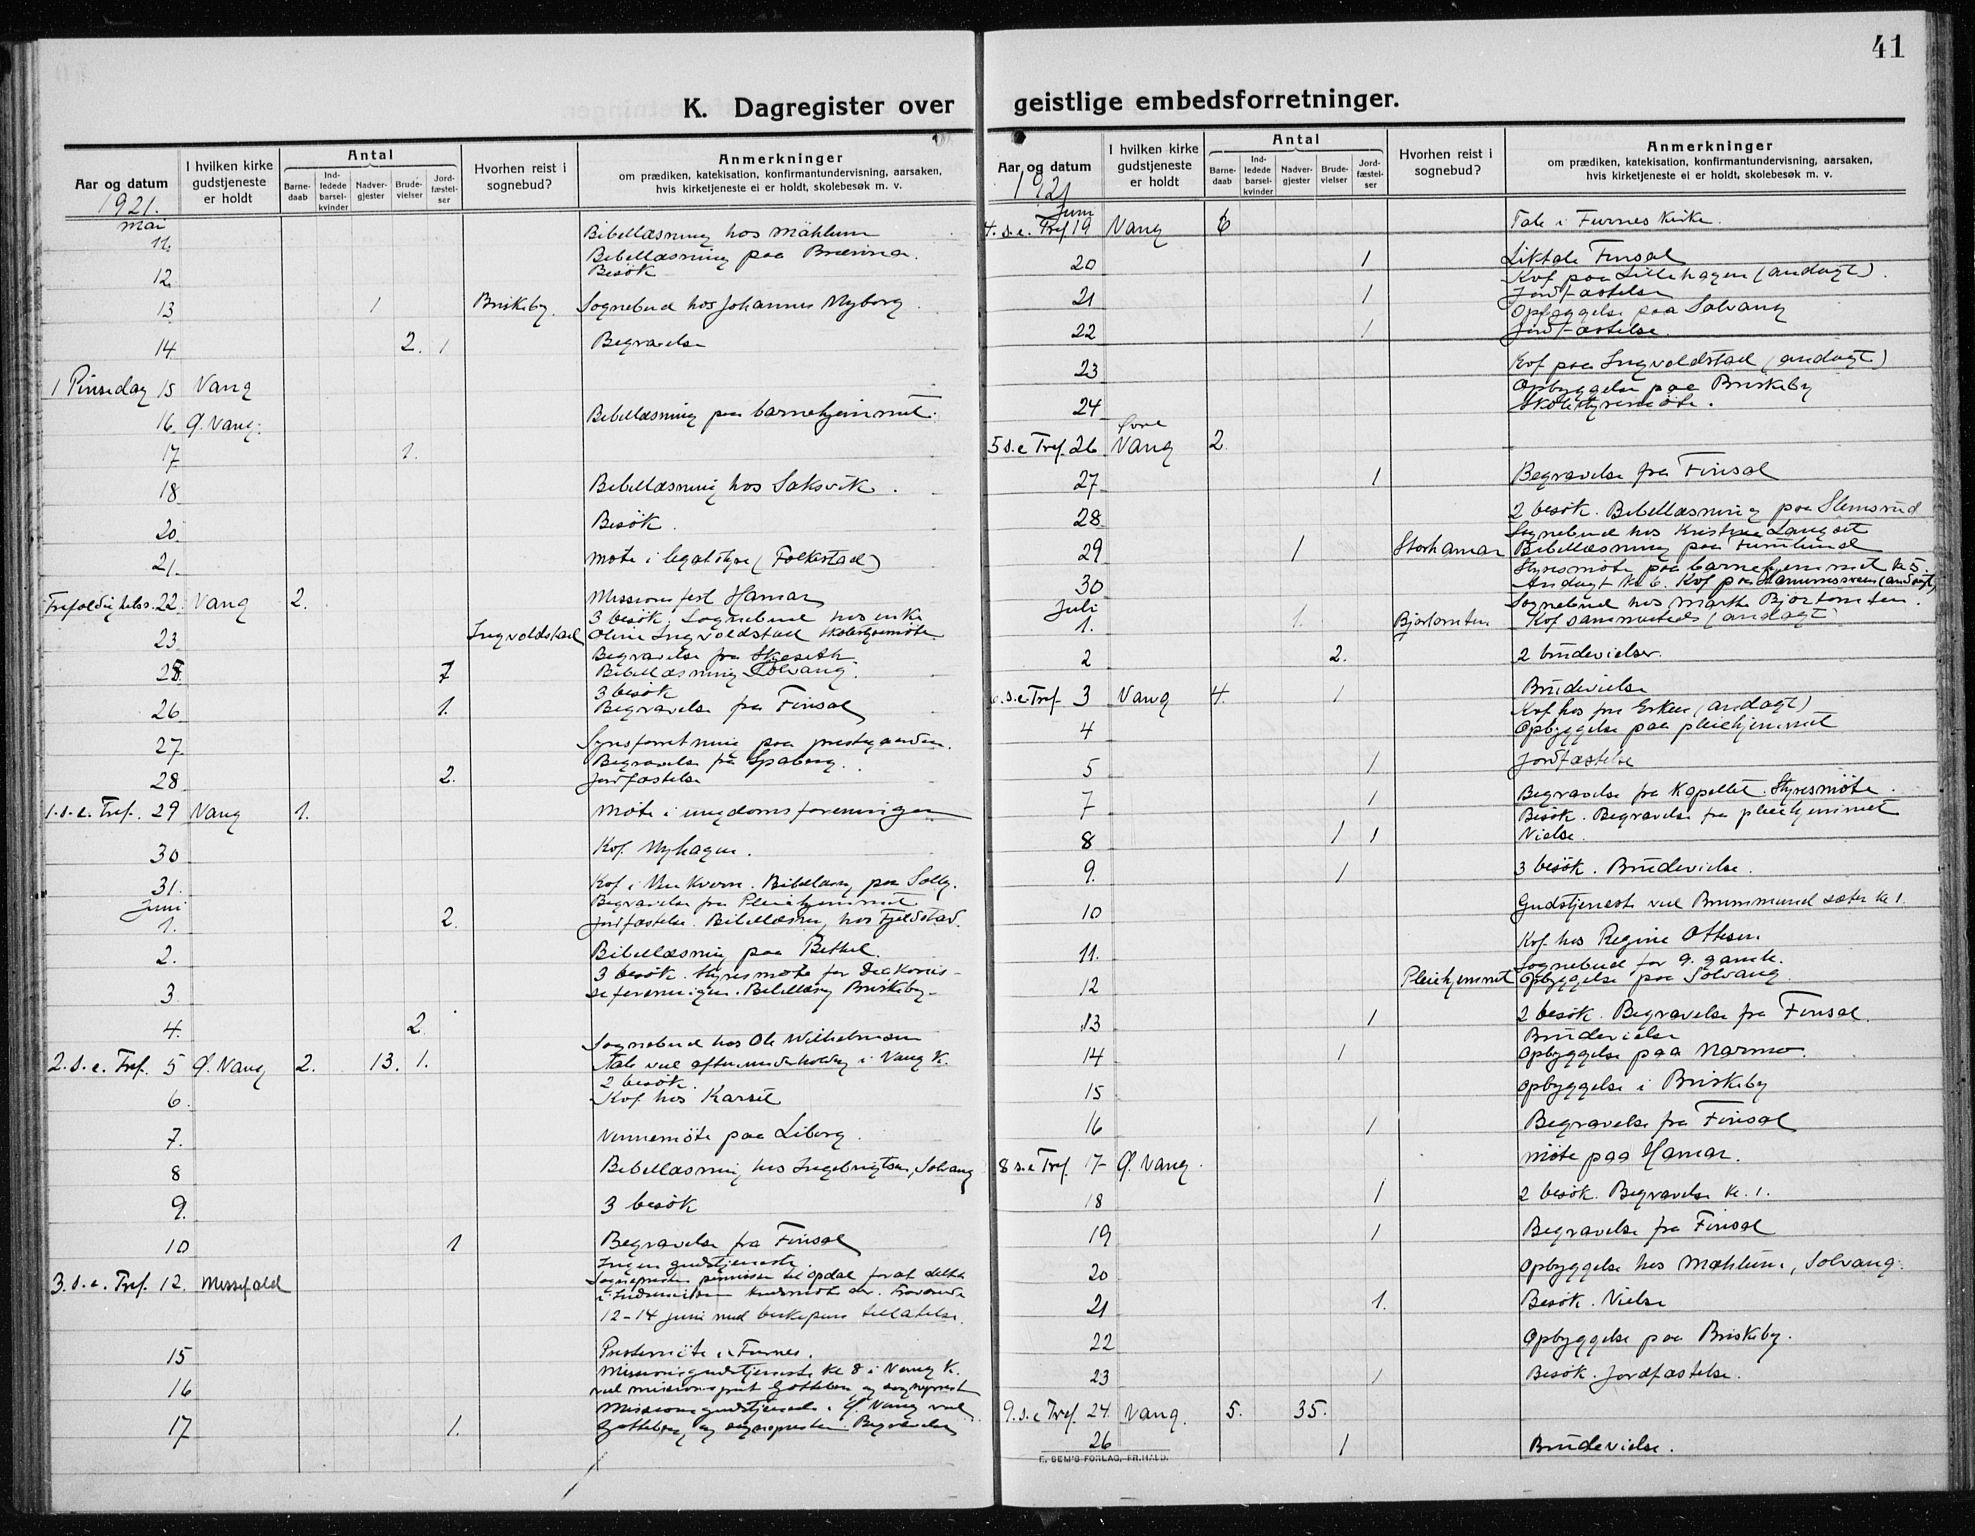 41
K. Dagregister over
geistlige embedsforretninger.
Aar og datum
I hvilken kirke gudstjeneste er holdt
Antal
Barne-daab
Ind-ledede barsel-kvinder
Nadver-gjester
Brude-vielser
Jord-fæstel-ser
Hvorhen reist i sognebud?
Anmerkninger
om prædiken, katekisation, konfirmantundervisning, aarsaken,
hvis kirketjeneste ei er holdt, skolebesøk m. v.
1921.
Mai
11. Bibellæsning hos Mæhlum
Bibellæsning paa
12. Besök
13 1 Briskeby. Sognebud hos Johannes Nyborg
14 2. 1 Begravelse
1 Pinsedag 15 Vang
16. Ø. Vang. Bibellæsning paa barnehjemmet.
17 1.
18 Bibellæsning hos Saksvik.
20. Besök.
21. Møte i legatstyre (Folkestad)
Trefoldighetss. 22. Vang 2. Missionsfest Hamar
3 besök. Sognebud hos enke
23 Ingvoldstad Oline Ingvoldstad Skolestyremöte
Begravelse fra Skeseth
25. Bibellæsning Solvang.
3 besök
26 1. Begravelse fra Finsal
27. Synsforretning paa prestegaarden.
Begravelse fra Spaberg.
28 2. Jordfæstelse
1. s. e. Tref. 29 Vang 1. Møte i ungdomsforeningen
30 Kof. Nyhagen.
31. Kof. i Kvern. Bibellæsng paa Solly.
Juni Begravelse fra Pleiehjemmet
1. 2. Jordfæstelse. Bibellæsning hos Fjeldstad.
2. Bibellæsning paa Bethel.
3 besök. Styresmøte for Diakonis-
3 seforeningen. Bibellæsng Briskeby.
4. 2.
Sognebud hos Ole Wilhelmsen
2. s. e. Tref. 5 Ø. Vang 2. 13. 1. Tale ved aftenunderholdng i Vang K.
2 besök.
6. Kof. hos Karset
7. Vennemöte paa Liberg.
8 Bibellæsning hos Ingebrigtsen, Solvang
9. 3 besök
10 1 Begravelse fra Finsal
Ingen gudstjeneste.
3. s. e. Tref. 12. Messefald
12-14 juni med biskopens tilladelse.
15 Prestemöte i Furnes.
Missionsgudstjeneste kl 8 i Vang K.
16 ved missionsprest Gotteberg og sogneprest
Missionsgudstjeneste i Ø. Vang ved
17 1. Gotteberg og sognepresten. Begravelse
Aar og datum
I hvilken kirke gudstjeneste er holdt
Antal
Barne-daab
Ind-ledede barsel-kvinder
Nadver-gjester
Brude-vielser
Jord-fæstel-ser
Hvorhen reist i sognebud?
Anmerkninger
om prædiken, katekisation, konfirmantundervisning, aarsaken,
hvis kirketjeneste ei er holdt, skolebesøk m. v.
1921
Juni
4. s. e. Tref 19 Vang 6 Tale i Furnes Kirke.
20 1 Liktale Finsal
Kof paa Lillehagen (andagt).
21 1 Jordfæstelse
Opbyggelse paa Solvang
22 1 Jordfæstelse.
23 Kof paa Ingvoldstad (andagt)
Opbyggelse paa Briskeby
24 Skolestyremöte.
5 s. e Tref. 26 Øvre Vang 2.
27 1 Begravelse fra Finsal
28 2 besök. Bibellæsning paa Slemsrud
Sognebud hos Kristine Langset
29 1 Storhamar Bibellæsning paa Furulund
Styresmöte paa barnehjemmet kl 5.
30 Andagt kl 6. Kof paa (andagt)
Juli Sognebud hos Marthe Bjortomten.
1. 1. Bjortomten Kof sammesteds (andagt)
2 2. 2 brudevielser.
6. s. e Tref. 3 Vang 4. 1 Brudevielse
Kof hos fru Erken (andagt)
4 Opbyggelse paa pleiehjemmet
5 1 Jordfæstelse
7 1 Begravelse fra Kapellet. Styresmöte.
Besök. Begravelse fra pleiehjemmet
8 1 1 Vielse.
9. 1 3 besök. Brudevielse.
10 Gudstjeneste ved Brummund sæter kl 1.
11. Kof. hos Regine Ottesen.
Sognebud for 9. gamle.
12 Pleiehjemmet Opbyggelse paa Solvang
13 1 2 besök. Begravelse fra Finsal.
Brudevielse
14 1 Opbyggelse paa Narmo.
15 Opbyggelse i Briskeby
16 1 Begravelse fra Finsal
8 s. e Tref. 17 Ø. Vang. Møte paa Hamar.
18 1 2 besök. Begravelse kl. 1.
19 1 Begravelse fra Finsal
20 Opbyggelse hos Mæhlum, Solvang.
21 1. Besök. Vielse
22 Opbyggelse paa Briskeby.
23 1 Besök. Jordfæstelse.
9. s. e Tref. 24. Vang. 5. 35.
26 1 Brudevielse.
F. SEM'S FORLAG, FR.HALD.